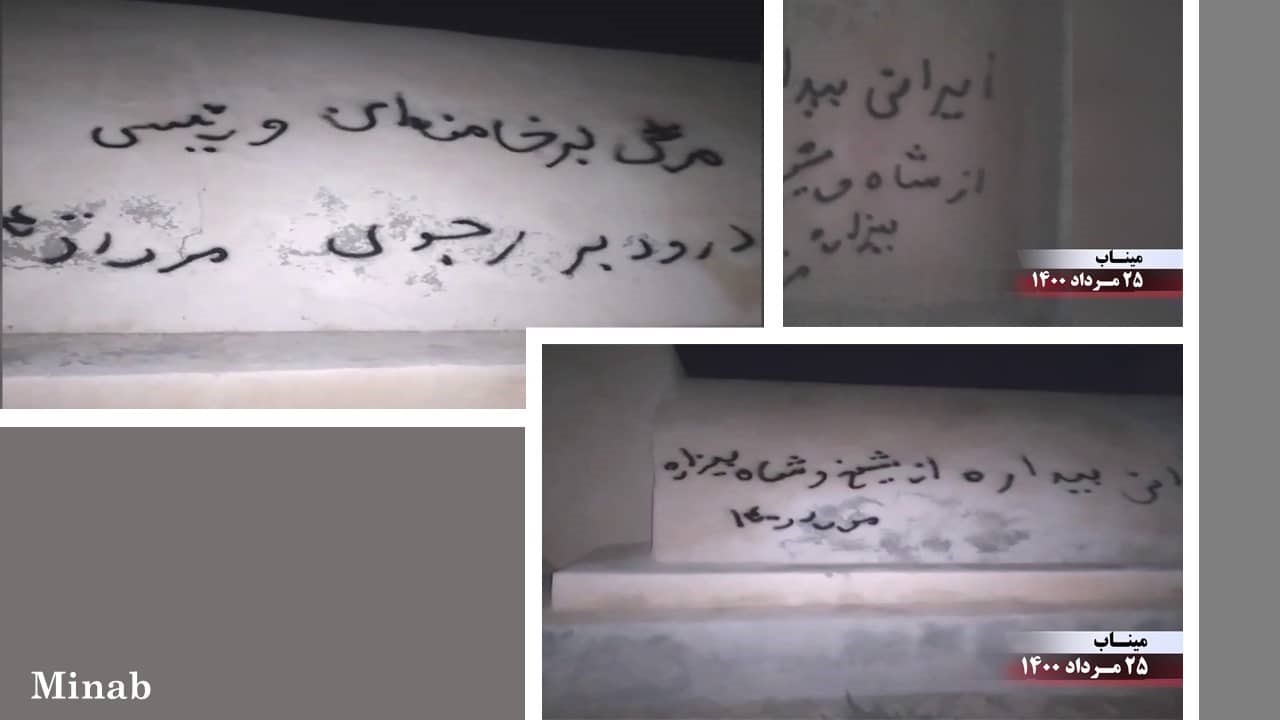 مرگ بر خامنه‌ای و رئیسی
درود بر رجوی مرداد
ایرانی بیدا
از شاه و شی
بیزاره
میناب
۲۵ مرداد ۱۴۰۰
انی بیداره از شیخ و شاه بیزاره
مرداد ۱۴۰۰
میناب
۲۵ مرداد ۱۴۰۰
Minab